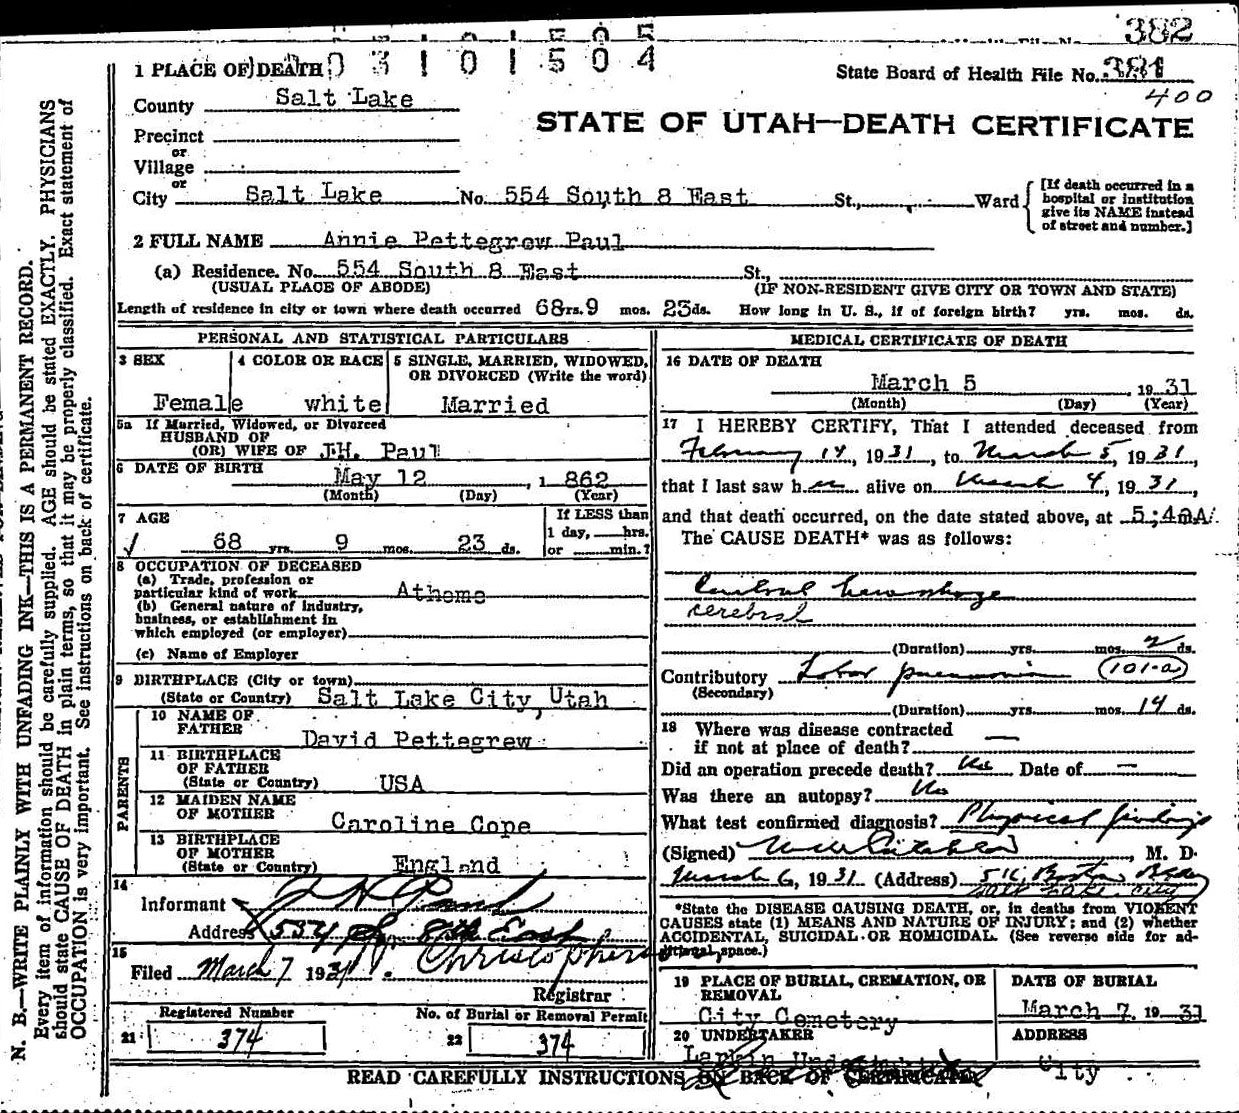 382
1 PLACE OF DEATH 0 3 1 0 1 5 0 4
State Board of Health File No. 381
400
County Salt Lake
STATE OF UTAH—DEATH CERTIFICATE
Precinct
or
Village
or
City Salt Lake No. 554 South 8 East St., Ward
[If death occurred in a
hospital or institution
give its NAME instead
of street and number.]
2 FULL NAME Annie Pettegrew Paul
(a) Residence. No. 554 South 8 East St.,
(USUAL PLACE OF ABODE) (IF NON-RESIDENT GIVE CITY OR TOWN AND STATE)
Length of residence in city or town where death occurred 68 yrs. 9 mos. 23 ds. How long in U. S., if of foreign birth? yrs. mos. ds.
PERSONAL AND STATISTICAL PARTICULARS
3 SEX 4 COLOR OR RACE 5 SINGLE, MARRIED, WIDOWED,
OR DIVORCED (Write the word)
Female white Married
5a If Married, Widowed, or Divorced
HUSBAND OF
(OR) WIFE OF J.H. Paul
6 DATE OF BIRTH
May 12, 1 862
(Month) (Day) (Year)
7 AGE If LESS than
1 day, hrs.
68 yrs. 9 mos. 23 ds. or min.?
8 OCCUPATION OF DECEASED
(a) Trade, profession or
particular kind of work Athome
(b) General nature of industry,
business, or establishment in
which employed (or employer)
(c) Name of Employer
9 BIRTHPLACE (City or town)
(State or Country) Salt Lake City, Utah
PARENTS
10 NAME OF
FATHER David Pettegrew
11 BIRTHPLACE
OF FATHER
(State or Country) USA
12 MAIDEN NAME
OF MOTHER Caroline Cope
13 BIRTHPLACE
OF MOTHER
(State or Country) England
14
Informant J H Paul
Address 554 So. 8th East
15
Filed March 7 1931
Registrar
Registered Number No. of Burial or Removal Permit
21 374 22 374
MEDICAL CERTIFICATE OF DEATH
16 DATE OF DEATH
March 5 1931
(Month) (Day) (Year)
17 I HEREBY CERTIFY, That I attended deceased from
February 14, 1931, to March 5, 1931,
that I last saw her alive on March 4, 1931,
and that death occurred, on the date stated above, at
The CAUSE DEATH* was as follows:
Cerebral hemorrhage
cerebral
(Duration) yrs. mos. 2 ds.
Contributory Lobar pneumonia (101-a)
(Secondary)
(Duration) yrs. mos. 14 ds.
18 Where was disease contracted
if not at place of death? —
Did an operation precede death? No Date of —
Was there an autopsy? No
What test confirmed diagnosis? Physical findings
(Signed) , M. D.
March 6, 1931 (Address) 516 Boston Bldg
Salt Lake City
*State the DISEASE CAUSING DEATH, or, in deaths from VIOLENT
CAUSES state (1) MEANS AND NATURE OF INJURY; and (2) whether
ACCIDENTAL, SUICIDAL OR HOMICIDAL. (See reverse side for ad-
ditional space.)
19 PLACE OF BURIAL, CREMATION, OR
REMOVAL
City Cemetery
DATE OF BURIAL
March 7, 1931
20 UNDERTAKER ADDRESS
Larkin City
READ CAREFULLY INSTRUCTIONS ON BACK OF CERTIFICATE
N. B.—WRITE PLAINLY WITH UNFADING INK—THIS IS A PERMANENT RECORD.
Every item of information should be carefully supplied. AGE should be stated EXACTLY. PHYSICIANS
should state CAUSE OF DEATH in plain terms, so that it may be properly classified. Exact statement of
OCCUPATION is very important. See instructions on back of certificate.